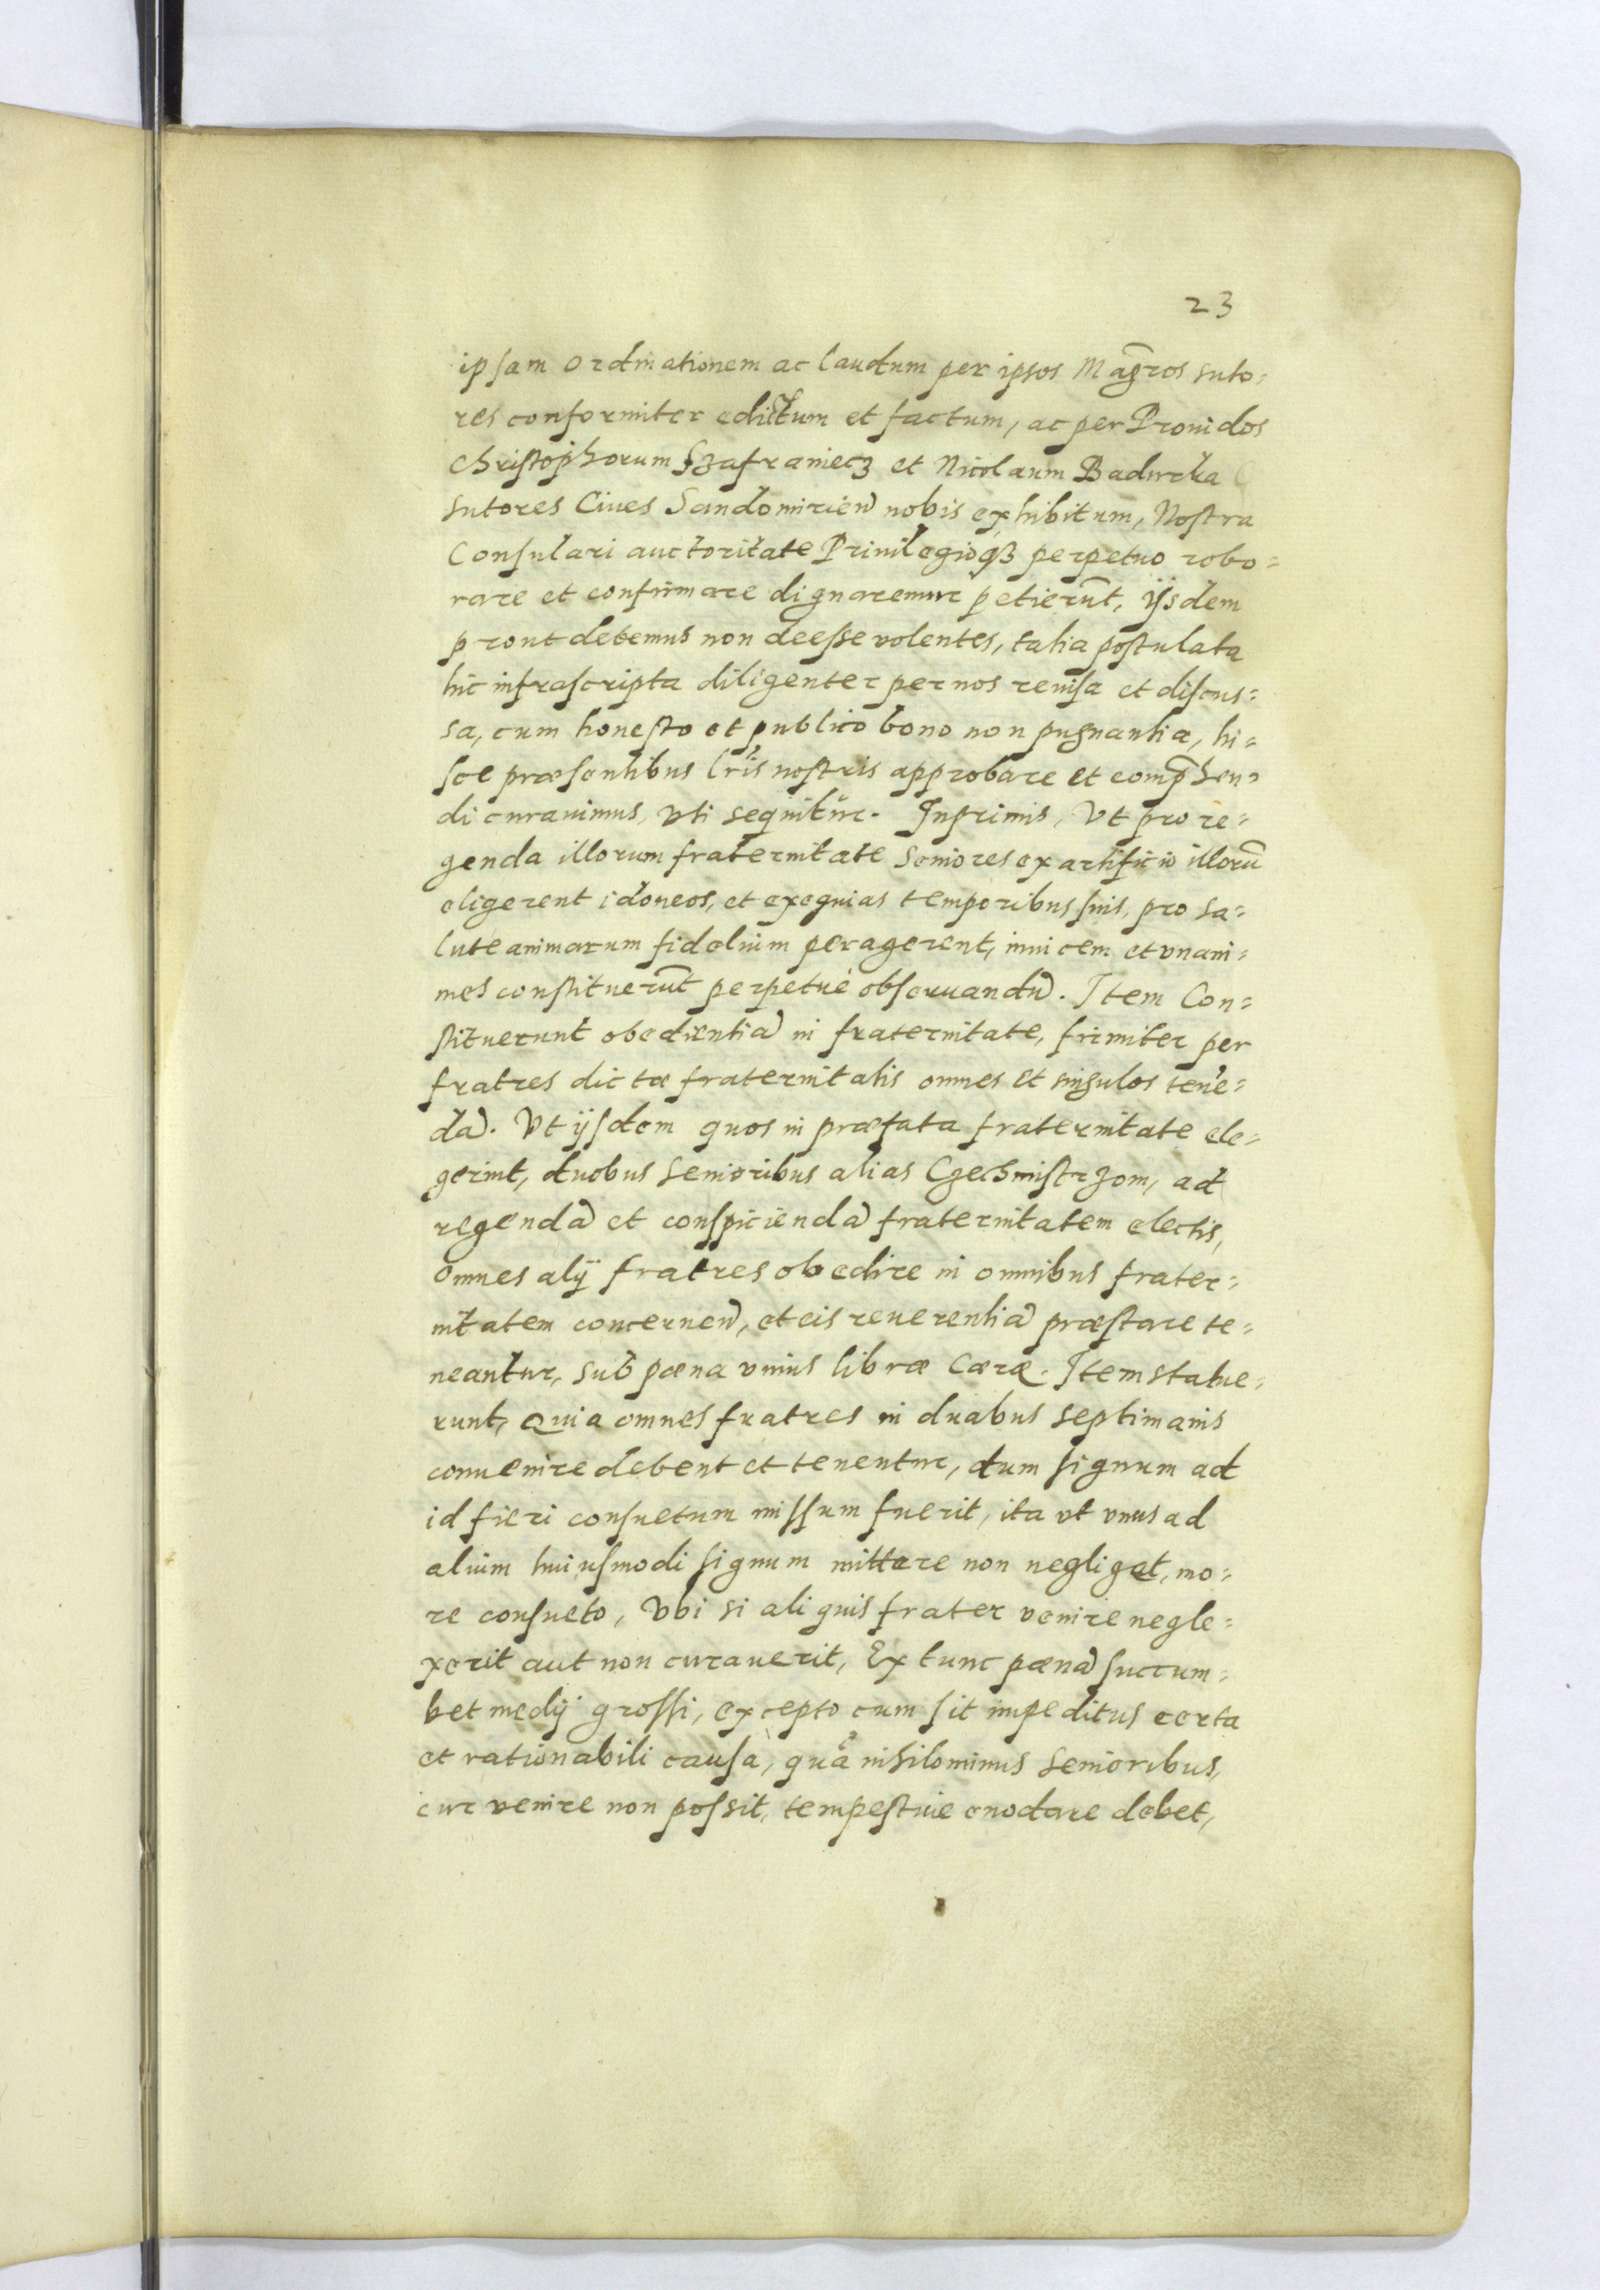 23
ipsam Ordinationem ac laudum per ipsos Mag̃ros suto=
res conformiter edictum et factum, ac per Prouidos
Christophorum Szafraniecz et Nicolaum Badurka
sutores Ciues Sandomirien̄ nobis exhibitum, Nostra
Consulari auctoritate Priuilegioqꝫ perpetuo robo=
rare et confirmare dignaremur petierūt, ijsdem
prout debemus non deesse volentes, talia postulata
hic infrascripta diligenter per nos reuisa et discus=
sa, cum honesto et publico bono non pugnantia, hi=
sce præsentibus lr̃is nostris approbare et comp̄hen=
di curauimus, vti sequitur. Inprimis, Vt pro re=
genda illorum fraternitate seniores ex artificio illorū
eligerent idoneos, et exequias temporibus suis, pro sa=
lute animarum fidelium peragerent, inuicem et vnani=
mes constituerūt perpetuè obseruandū. Item Con=
stituerunt obedientiā in fraternitate, firmiter per
fratres dictæ fraternitatis omnes et singulos tene=
dā. Vt ijsdem quos in præfata fraternitate ele=
gerint, duobus senioribus alias Czechmistrzom, ad
regendā et conspiciendā fraternitatem electis,
omnes alij fratres obedire in omnibus frater=
nitatem concernen̄, et eis reuerentiā præstare te=
neantur, sub pœna vnius libræ Cæræ. Item statue=
runt, Quia omnes fratres in duabus septimanis
conuenire debent et tenentur, dum signum ad
id fieri consuetum missum fuerit, ita vt vnus ad
alium huiusmodi signum mittere non negliget, mo=
re consueto, Vbi si aliquis frater venire negle=
xerit aut non curauerit, Ex tunc pœnā succum=
bet medij grossi, excepto cum sit impeditus certa
et rationabili causà, quā nihilominus senioribus,
cur venire non possit, tempestiue enodare debet,